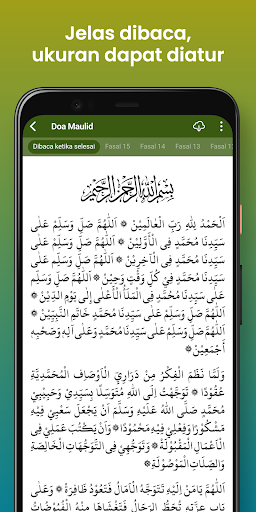 Jelas dibaca,
ukuran dapat diatur
Doa Maulid
Dibaca ketika selesai Fasal 15 Fasal 14 Fasal 13 Fasal 12
بِسْمِ اللهِ الرَّحْمٰنِ الرَّحِيْمِ
اَلْحَمْدُ لِلّٰهِ رَبِّ الْعَالَمِيْنَ ۞ اَللّٰهُمَّ صَلِّ وَسَلِّمْ عَلَى
سَيِّدِنَا مُحَمَّدٍ فِي الْأَوَّلِيْنَ ۞ اَللّٰهُمَّ صَلِّ وَسَلِّمْ عَلَى
سَيِّدِنَا مُحَمَّدٍ فِى الْآخِرِيْنَ ۞ اَللّٰهُمَّ صَلِّ وَسَلِّمْ عَلَى
سَيِّدِنَا مُحَمَّدٍ فِيْ كُلِّ وَقْتٍ وَحِيْنٍ ۞ اَللّٰهُمَّ صَلِّ وَسَلِّمْ عَلَى
سَيِّدِنَا مُحَمَّدٍ فِى الْمَلَأِ الْأَعْلَى إِلَى يَوْمِ الدِّيْنِ ۞
اَللّٰهُمَّ صَلِّ وَسَلِّمْ عَلَى سَيِّدِنَا مُحَمَّدٍ خَاتَمِ النَّبِيِّيْنَ ۞
اَللّٰهُمَّ صَلِّ وَسَلِّمْ عَلَى سَيِّدِنَا مُحَمَّدٍ وَعَلَى آلِهِ وَصَحْبِهِ
أَجْمَعِيْنَ ۞
وَلَمَّا نَظَمَ الْفِكْرُ مِنْ دَرَارِيِّ الْأَوْصَافِ الْمُحَمَّدِيَّةِ
عُقُوْدًا ۞ تَوَجَّهْتُ إِلَى اللهِ مُتَوَسِّلًا بِسَيِّدِيْ وَحَبِيْبِيْ
مُحَمَّدٍ صَلَّى اللهُ عَلَيْهِ وَسَلَّمَ أَنْ يَجْعَلَ سَعْيِيْ فِيْهِ
مَشْكُوْرًا وَفِعْلِيْ فِيْهِ مَحْمُوْدًا ۞ وَأَنْ يَكْتُبَ عَمَلِيْ فِى
الْأَعْمَالِ الْمَقْبُوْلَةِ ۞ وَتَوَجُّهِيْ فِى التَّوَجُّهَاتِ الْخَالِصَةِ
وَالصِّلَاتِ الْمَوْصُوْلَةِ ۞
اَللّٰهُمَّ يَامَنْ إِلَيْهِ تَتَوَجَّهُ الْآمَالُ فَتَعُوْدُ ظَافِرَةً ۞ وَعَلَى
بَابِ عِزَّتِهِ تُحَطُّ الرِّحَالُ فَتَغْشَاهَا مِنْهُ الْفُيُوْضَاتُ